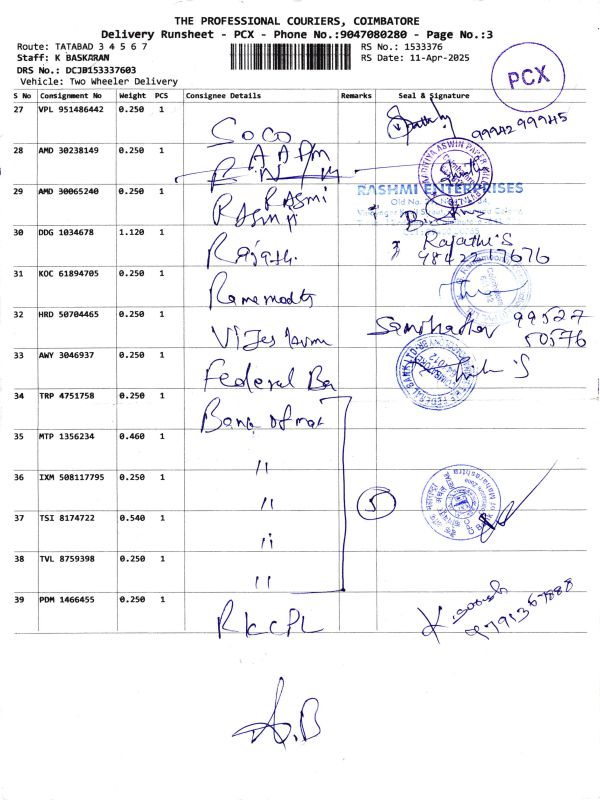 THE PROFESSIONAL COURIERS, COIMBATORE
Delivery Runsheet - PCX - Phone No.:9047080280 - Page No.:3
Route: TATABAD 3 4 5 6 7
RS No.: 1533376
Staff: K BASKARAN
RS Date: 11-Apr-2025
DRS No.: DCJB153337603
Vehicle: Two Wheeler Delivery
PCX
S No Consignment No Weight PCS Consignee Details Remarks Seal & Signature
27 VPL 951486442 0.250 1 SOCO 99942 99945
28 AMD 30238149 0.250 1
29 AMD 30065240 0.250 1 RASMI RASHMI ENTERPRISES
30 DDG 1034678 1.120 1 Rajathi Rajathi'S
9842217676
31 KOC 61894705 0.250 1
32 HRD 50704465 0.250 1 99527
50576
33 AWY 3046937 0.250 1 Federal Ba
34 TRP 4751758 0.250 1 Bank of mah
35 MTP 1356234 0.460 1 "
36 IXM 508117795 0.250 1 "
5
37 TSI 8174722 0.540 1 "
38 TVL 8759398 0.250 1 "
39 PDM 1466455 0.250 1 RKCPL
A.B